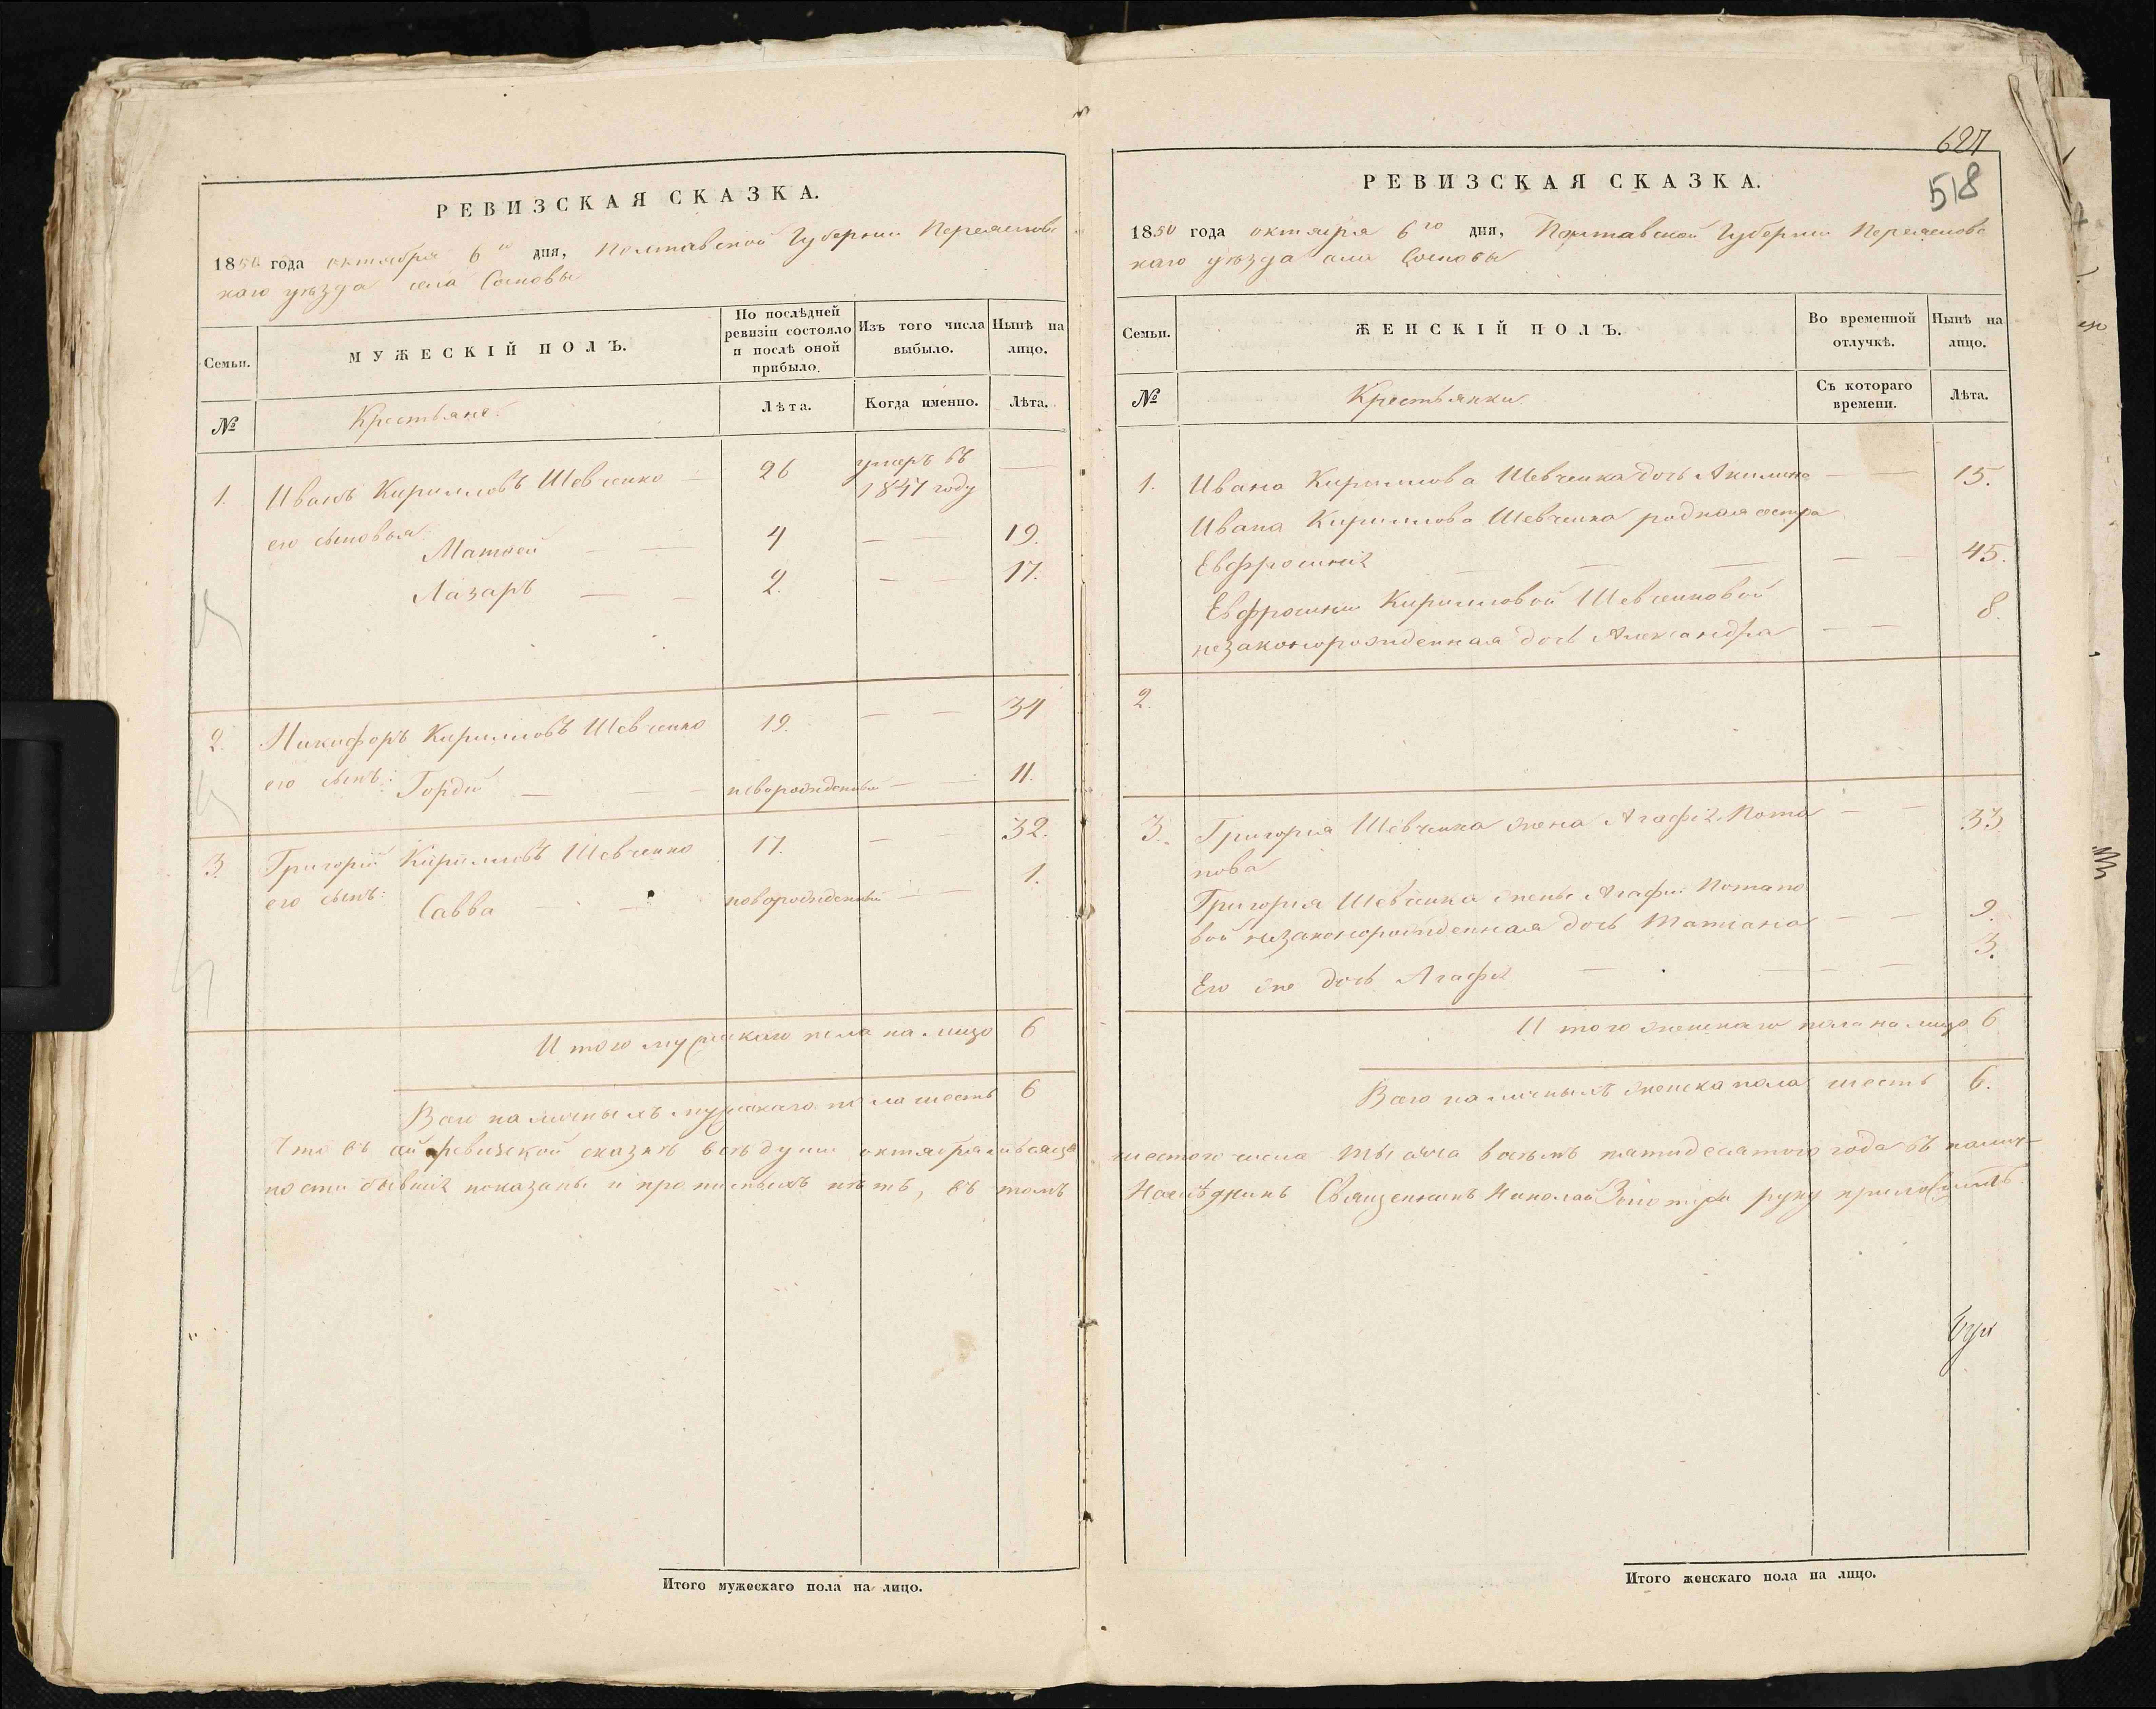 РЕВИЗСКАЯ СКАЗКА.
1850 года октября 6го дня, Полтавской Губернии Переяслов
каго уѣзда села Сосновы
Семьи.
МУЖЕСКІЙ ПОЛЪ.
По послѣдней
ревизіи состояло
и послѣ оной
прибыло.
Изъ того числа
выбыло.
Нынѣ на
лицо.
№
Крестьяне.
Лѣта.
Когда именно.
Лѣта.
1. Иванъ Кирилловъ Шевченко — 26 умеръ въ —
1841 году
его сыновья:
Матвей — — 4 — — 19.
Лазарь — — 2. — — 17.
2. Никифоръ Кирилловъ Шевченко 19. — — 34
его сынъ: Гордій — — — новорожденный — — 11.
3. Григорій Кирилловъ Шевченко 17. — — 32.
его сынъ: Савва — — новорожденный — — 1.
Итого мужескаго пола на лицо 6
Всего наличныхъ мужескаго пола шесть 6
Что въ сей ревизской сказкѣ всѣ души октября мѣсяца
ности бывшіе показаны и прописныхъ нѣтъ, въ томъ
Итого мужескаго пола на лицо.
627
518
РЕВИЗСКАЯ СКАЗКА.
1850 года октября 6го дня, Полтавской Губернии Переяслов
каго уѣзда села Сосновы
Семьи.
ЖЕНСКІЙ ПОЛЪ.
Во временной
отлучкѣ.
Нынѣ на
лицо.
№
Крестьянки.
Съ котораго
времени.
Лѣта.
1. Ивана Кириллова Шевченка дочь Акилина — — 15.
Ивана Кириллова Шевченка родная сестра
Евфросинія — — — — — 45.
Евфросиніи Кирилловой Шевченковой 8.
незаконорожденная дочь Александра — —
2.
3. Григорія Шевченка жена Агафія Пота — — 33
пова
Григорія Шевченка жены Агафіи Потапо
вой незаконорожденная дочь Татіана — — 9.
Его же дочь Агафія — — — — 3.
Итого женскаго пола на лицо 6
Всего наличныхъ женска пола шесть 6.
шестого числа тысяча восемъ пятидесятого года въ налич-
Наслѣдникъ Священникъ Николай руку приложилъ.
Итого женскаго пола на лицо.